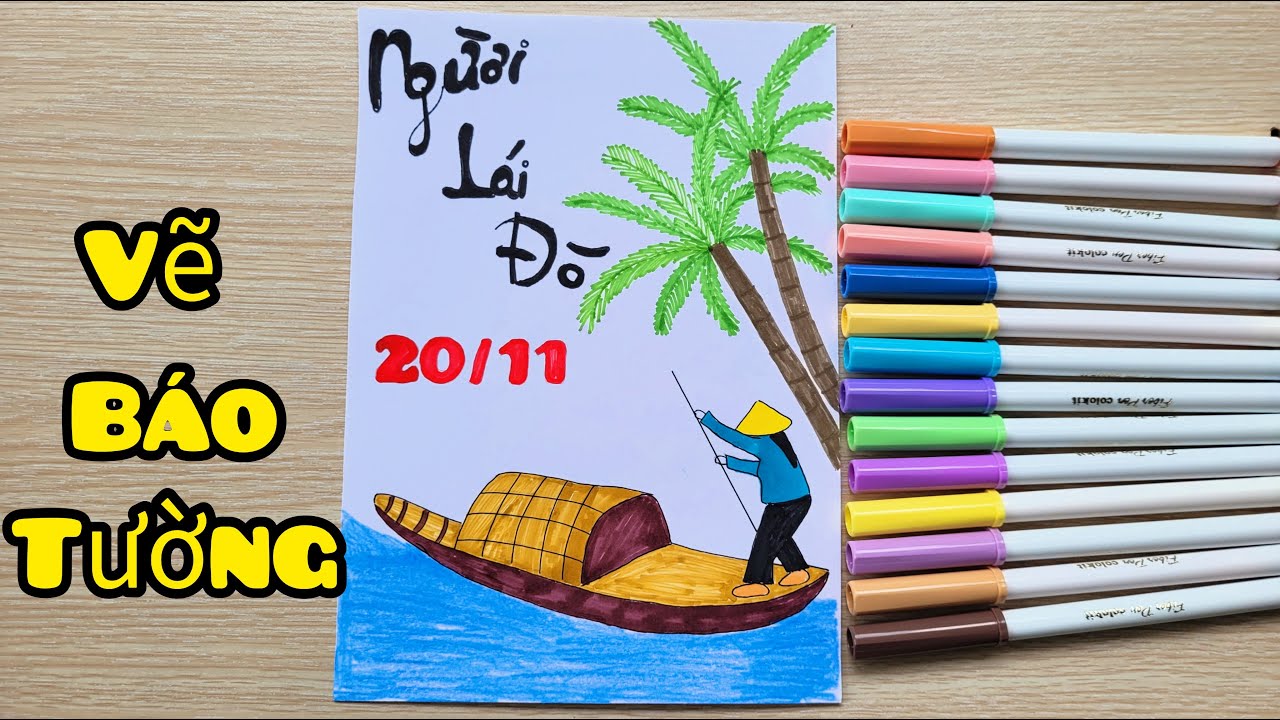 Vẽ
Báo
Tường
Người
Lái
Đò
20/11
Fiber Pen colokit
Fiber Pen colokit
Fiber Pen colokit
Fiber Pen colokit
Fiber Pen colokit
Fiber Pen colokit